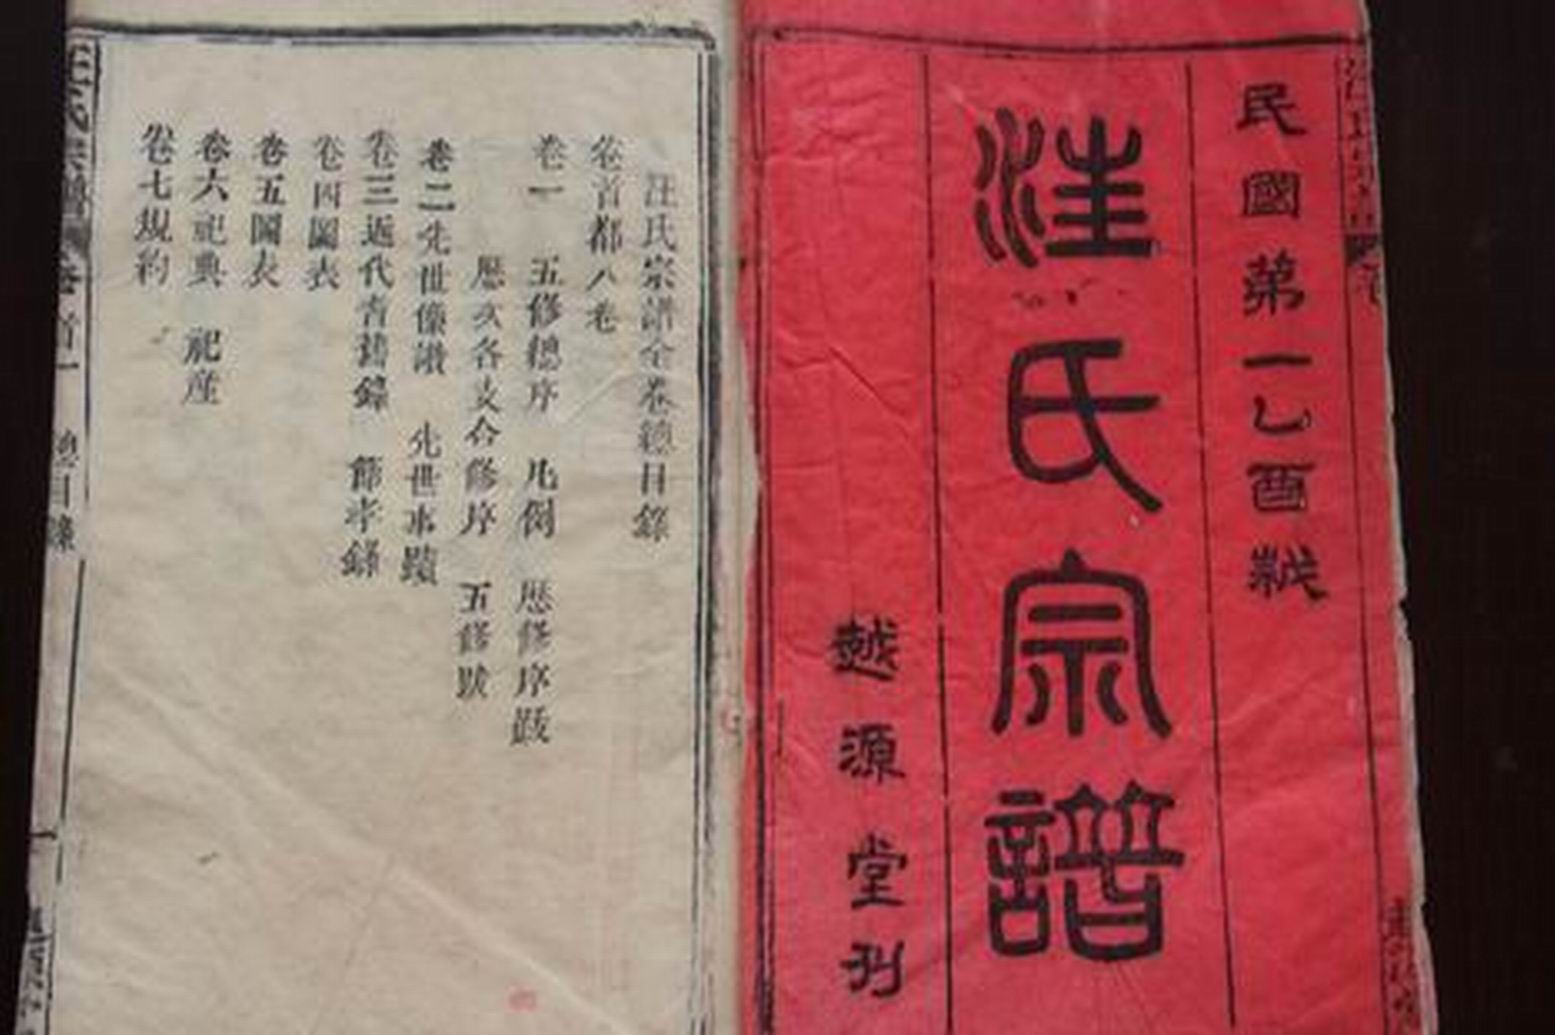 民國第一乙酉栞
汪氏宗譜
越源堂刊
汪氏宗譜全卷總目錄
卷首都八卷
卷一 五修總序 凡例 歷修序跋
歷次各支合修序 五修跋
卷二先世像讚 先世事蹟
卷三近代耆舊錄 節孝錄
卷四圖表
卷五圖表
卷六祀典 祀產
卷七規約
汪氏宗譜 卷首一 總目錄 一